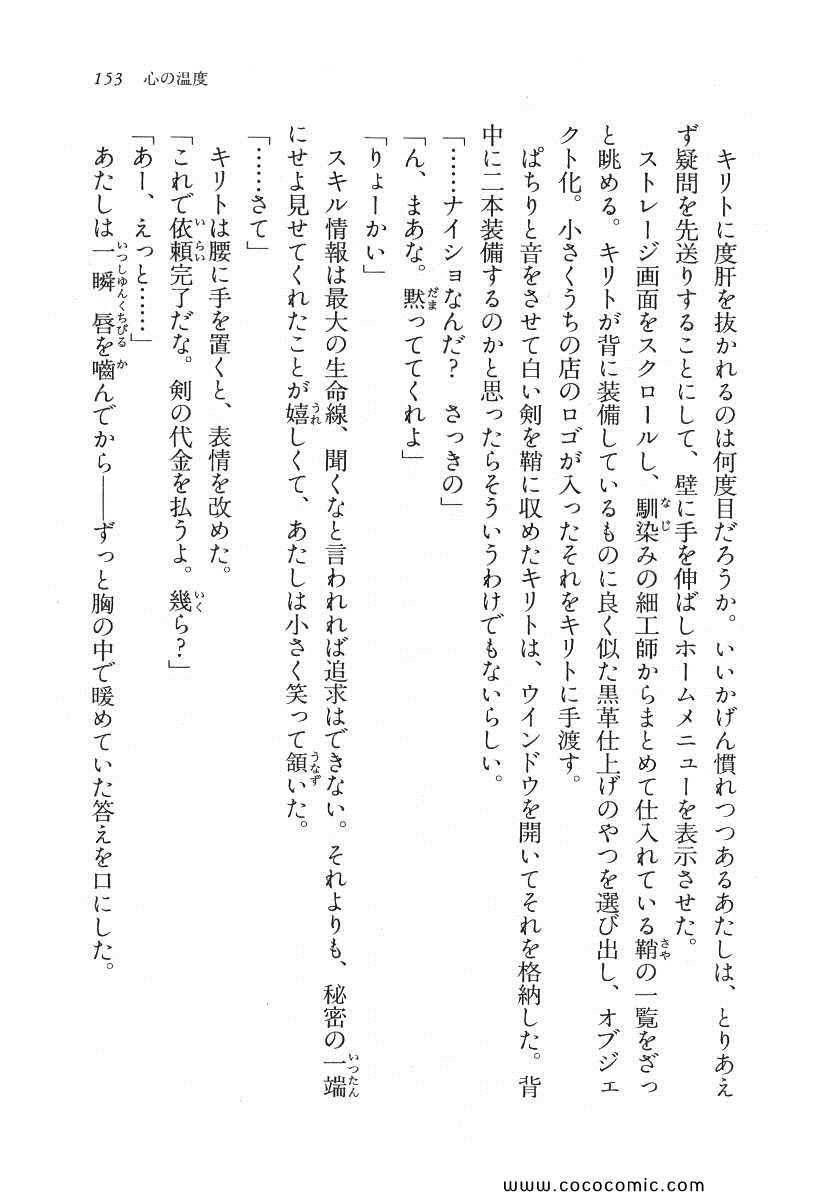 153 心の温度
キリトに度肝を抜かれるのは何度目だろうか。いいかげん慣れつつあるあたしは、とりあえ
ず疑問を先送りすることにして、壁に手を伸ばしホームメニューを表示させた。
ストレージ画面をスクロールし、馴染みの細工師からまとめて仕入れている鞘の一覧をざっ
と眺める。キリトが背に装備しているものに良く似た黒革仕上げのやつを選び出し、オブジェ
クト化。小さくうちの店のロゴが入ったそれをキリトに手渡す。
ぱちりと音をさせて白い剣を鞘に収めたキリトは、ウインドウを開いてそれを格納した。背
中に二本装備するのかと思ったらそういうわけでもないらしい。
「……ナイショなんだ？　さっきの」
「ん、まあな。黙っててくれよ」
「りょーかい」
スキル情報は最大の生命線、聞くなと言われれば追求はできない。それよりも、秘密の一端
にせよ見せてくれたことが嬉しくて、あたしは小さく笑って頷いた。
「……さて」
キリトは腰に手を置くと、表情を改めた。
「これで依頼完了だな。剣の代金を払うよ。幾ら？」
「あー、えっと……」
あたしは一瞬唇を嚙んでから――ずっと胸の中で暖めていた答えを口にした。
www.cococomic.com